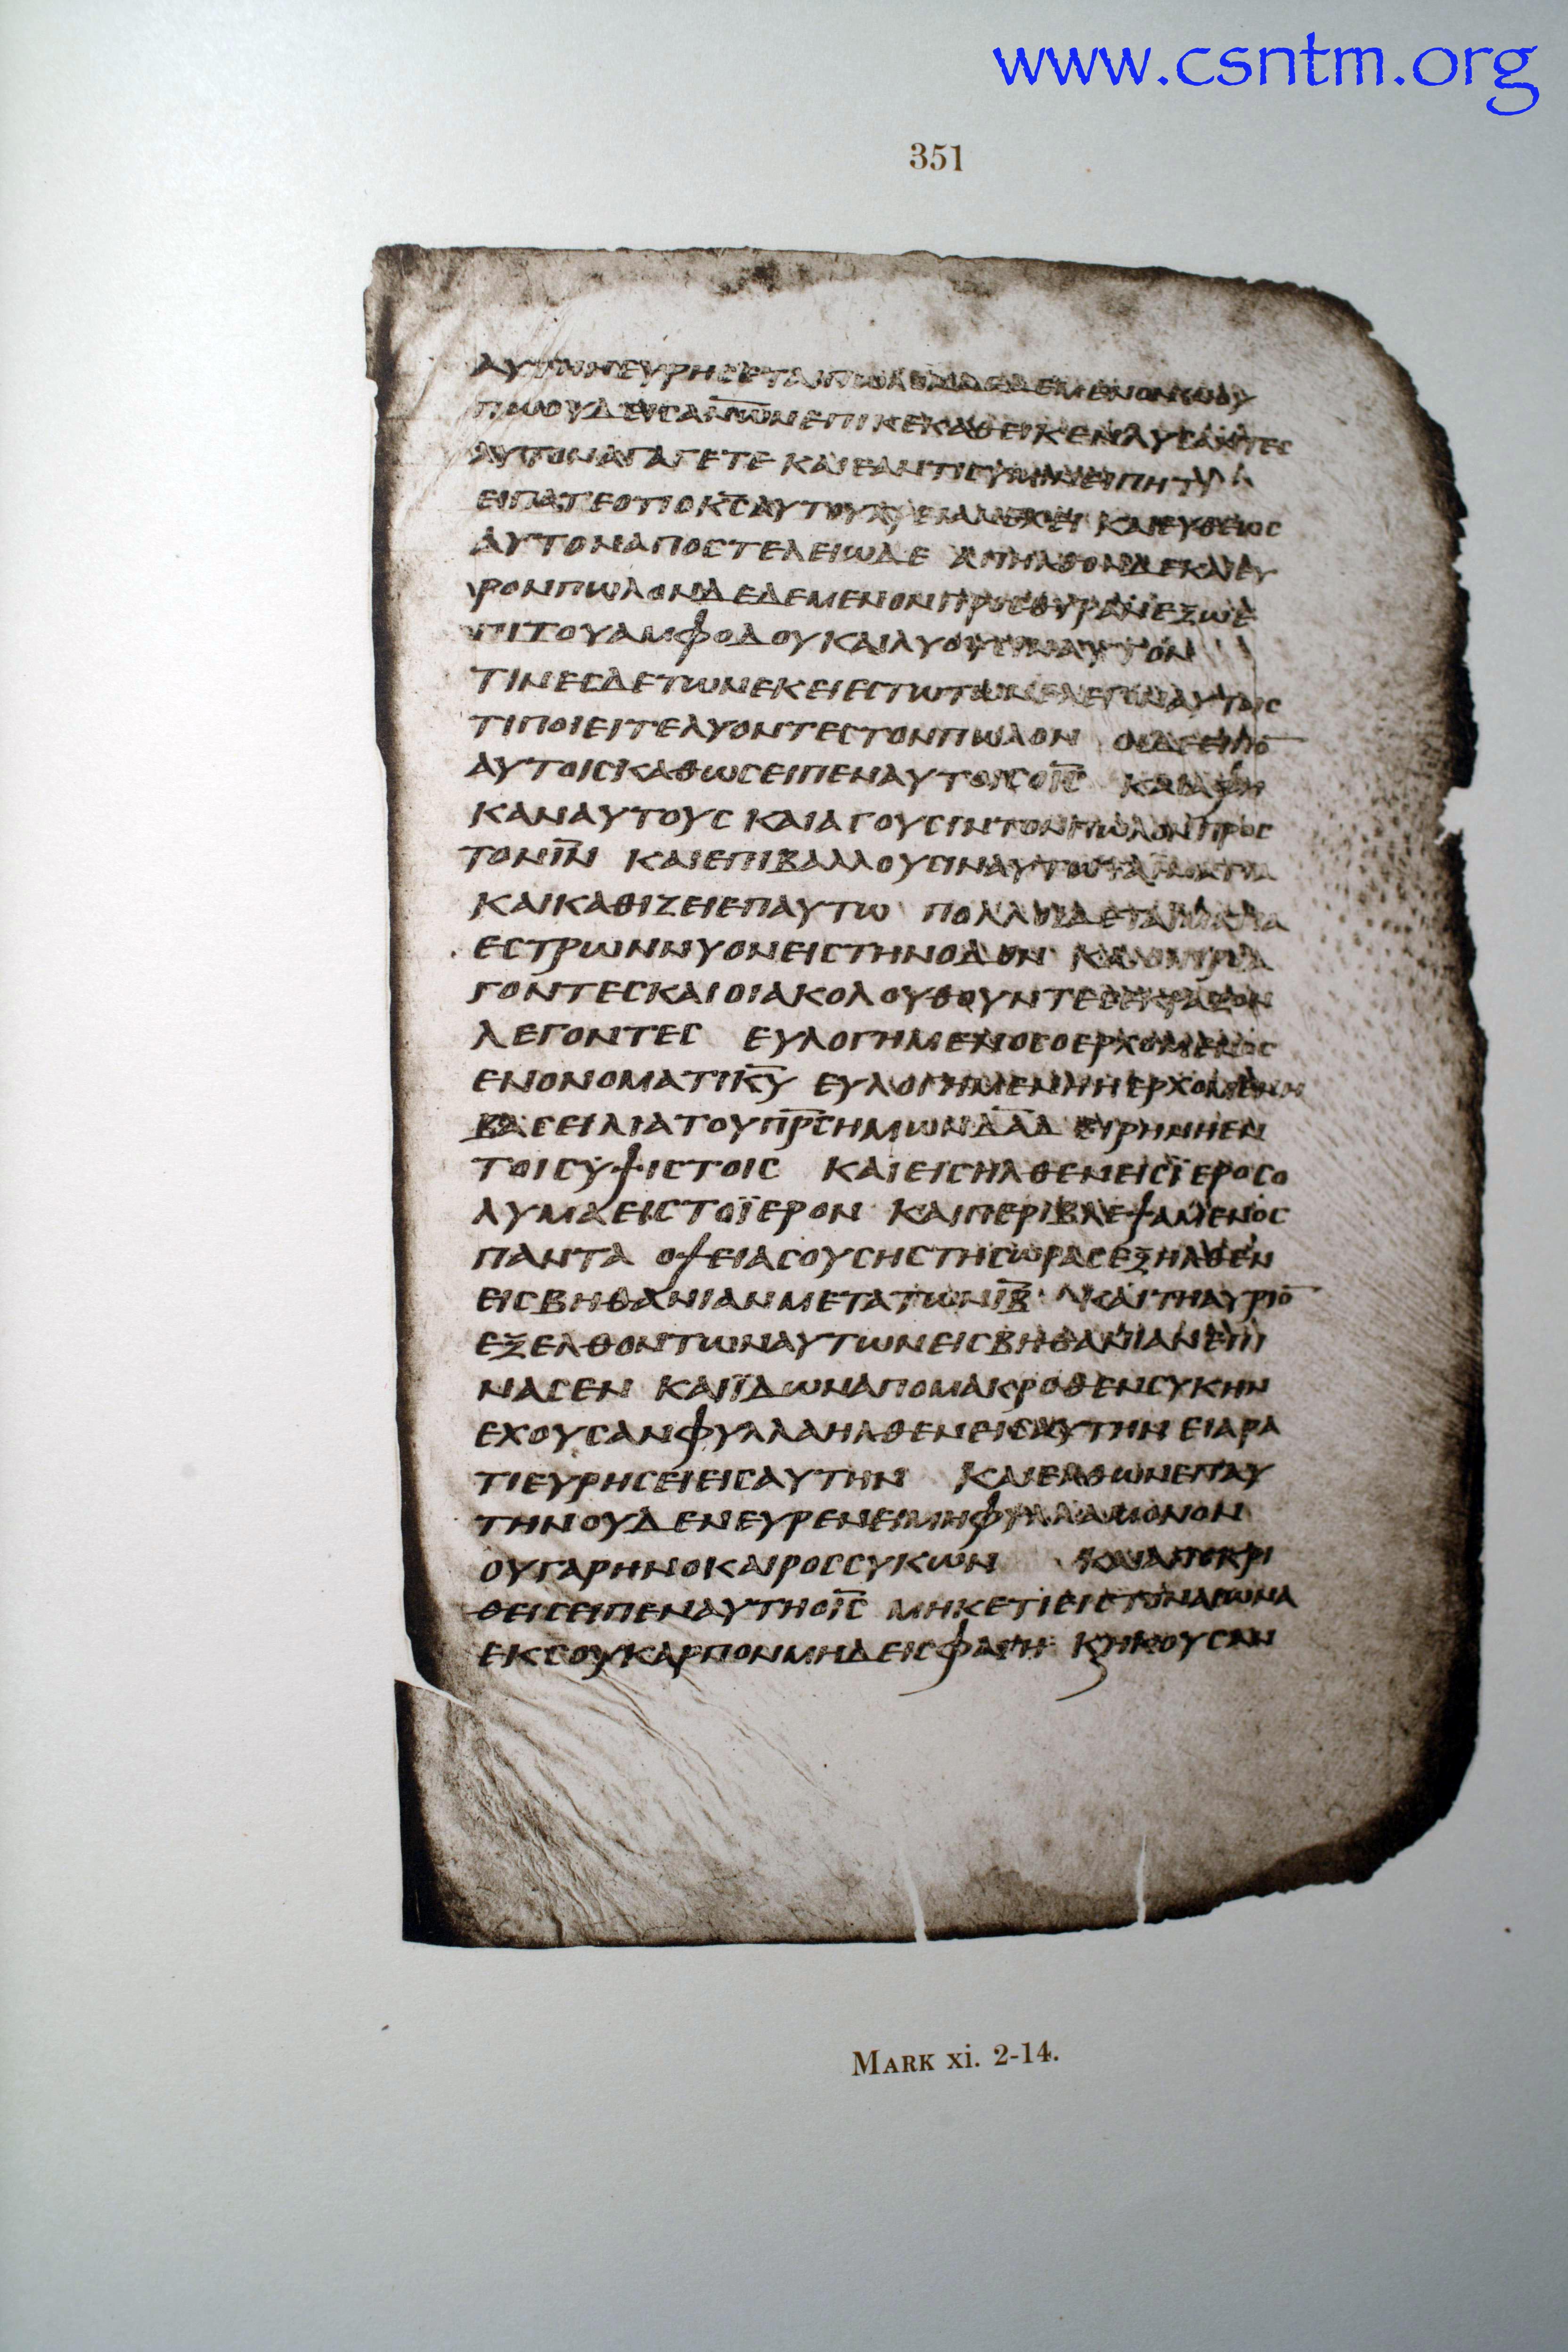 www.csntm.org
351
ΠΩΟΥΔΕΙϹΑΝΩ̅Ν̅ΕΠΙΚΕΚΑΘΕΙΚΕΝΛΥϹΑΝΤΕϹ
ΑΥΤΟΝΑΓΑΓΕΤΕ ΚΑΙΕΑΝΤΙϹΥΜΙΝΕΙΠΗΤΙ
ΕΙΠΑΤΕΟΤΙΟΚ̅Ϲ̅ΑΥΤΟΥΧΡΕΙΑΝΕΧΕΙ ΚΑΙΕΥΘΕΩϹ
ΑΥΤΟΝΑΠΟϹΤΕΛΕΙΩΔΕ ΑΠΗΛΘΟΝΔΕΚΑΙΕΥ
ΡΟΝΠΩΛΟΝΔΕΔΕΜΕΝΟΝΠΡΟϹΘΥΡΑΝΕΞΩΕ
ΠΙΤΟΥΑΜΦΟΔΟΥΚΑΙΛΥΟΥϹΙΝΑΥΤΟΝ
ΤΙΝΕϹΔΕΤΩΝΕΚΕΙΕϹΤΩΤΩΝΕΛΕΓΟΝΑΥΤΟΙϹ
ΤΙΠΟΙΕΙΤΕΛΥΟΝΤΕϹΤΟΝΠΩΛΟΝ ΟΙΔΕΕΙΠΟ̅
ΑΥΤΟΙϹΚΑΘΩϹΕΙΠΕΝΑΥΤΟΙϹΟΙ̅Ϲ̅ ΚΑΙΑΦΗ
ΚΑΝΑΥΤΟΥϹ ΚΑΙΑΓΟΥϹΙΝΤΟΝΠΩΛΟΝΠΡΟϹ
ΤΟΝΙ̅Ν̅ ΚΑΙΕΠΙΒΑΛΛΟΥϹΙΝΑΥΤΩ
ΚΑΙΚΑΘΙΖΕΙΕΠΑΥΤΩ ΠΟΛΛΟΙΔΕΤΑΙΜΑΤΙΑ
ΕϹΤΡΩΝΝΥΟΝΕΙϹΤΗΝΟΔΟΝ ΚΑΙΟΙΠΡΟΑ
ΓΟΝΤΕϹΚΑΙΟΙΑΚΟΛΟΥΘΟΥΝΤΕϹΕΚΡΑΖΟΝ
ΛΕΓΟΝΤΕϹ ΕΥΛΟΓΗΜΕΝΟϹΟΕΡΧΟΜΕΝΟϹ
ΕΝΟΝΟΜΑΤΙΚ̅Υ̅ ΕΥΛΟΓΗΜΕΝΗΗΕΡΧΟΜΕΝΗ
ΒΑϹΕΙΛΙΑΤΟΥΠ̅Ρ̅Ϲ̅ΗΜΩΝΔ̅Α̅Δ̅ ΕΙΡΗΝΗΕΝ
ΤΟΙϹΥΨΙϹΤΟΙϹ ΚΑΙΕΙϹΗΛΘΕΝΕΙϹΪΕΡΟϹΟ
ΛΥΜΑΕΙϹΤΟΪΕΡΟΝ ΚΑΙΠΕΡΙΒΛΕΨΑΜΕΝΟϹ
ΠΑΝΤΑ ΟΨΕΙΑϹΟΥϹΗϹΤΗϹΩΡΑϹΕΞΗΛΘΕΝ
ΕΙϹΒΗΘΑΝΙΑΝΜΕΤΑΤΩΝΙ̅Β̅ ΚΑΙΤΗΑΥΡΙΟ̅
ΕΞΕΛΘΟΝΤΩΝΑΥΤΩΝΕΙϹΒΗΘΑΝΙΑΝΕΠΙ
ΝΑϹΕΝ ΚΑΙΪΔΩΝΑΠΟΜΑΚΡΟΘΕΝϹΥΚΗΝ
ΕΧΟΥϹΑΝΦΥΛΛΑΗΛΘΕΝΕΙϹΑΥΤΗΝ ΕΙΑΡΑ
ΤΙΕΥΡΗϹΕΙΕΙϹΑΥΤΗΝ ΚΑΙΕΛΘΩΝΕΠΑΥ
ΤΗΝΟΥΔΕΝΕΥΡΕΝΕΙΜΗΦΥΛΛΑΜΟΝΟΝ
ΟΥΓΑΡΗΝΟΚΑΙΡΟϹϹΥΚΩΝ ΚΑΙΑΠΟΚΡΙ
ΘΕΙϹΕΙΠΕΝΑΥΤΗΟΙ̅Ϲ̅ ΜΗΚΕΤΙΕΙϹΤΟΝΑΙΩΝΑ
ΕΚϹΟΥΚΑΡΠΟΝΜΗΔΕΙϹΦΑΓΗ ΚϗΗΚΟΥϹΑΝ
MARK xi. 2-14.